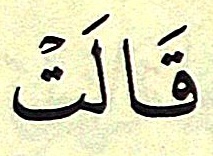 قَالَتْ